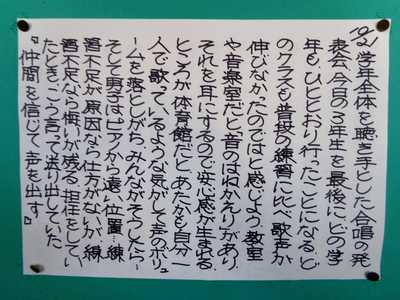 10/21 学年全体を聴き手とした合唱の発
表会。今日の3年生を最後にどの学
年も、ひととおり行ったことになる。ど
のクラスも普段の練習に比べ歌声が
伸びなかったのではと感じよう。教室
や音楽室だと「音のはねかえり」があり、
それを耳にするので安心感が生まれる。
ところが体育館だと、あたかも自分一
人で歌っているような気がして声のボリュ
ームを落としがち。みんながそうしたら…
そして男子はピアノから遠い位置…練
習不足が原因なら仕方がないが、練
習不足なら悔いが残る。担任をしてい
たとき、こう言って送り出していた。
『仲間を信じて声を出す』